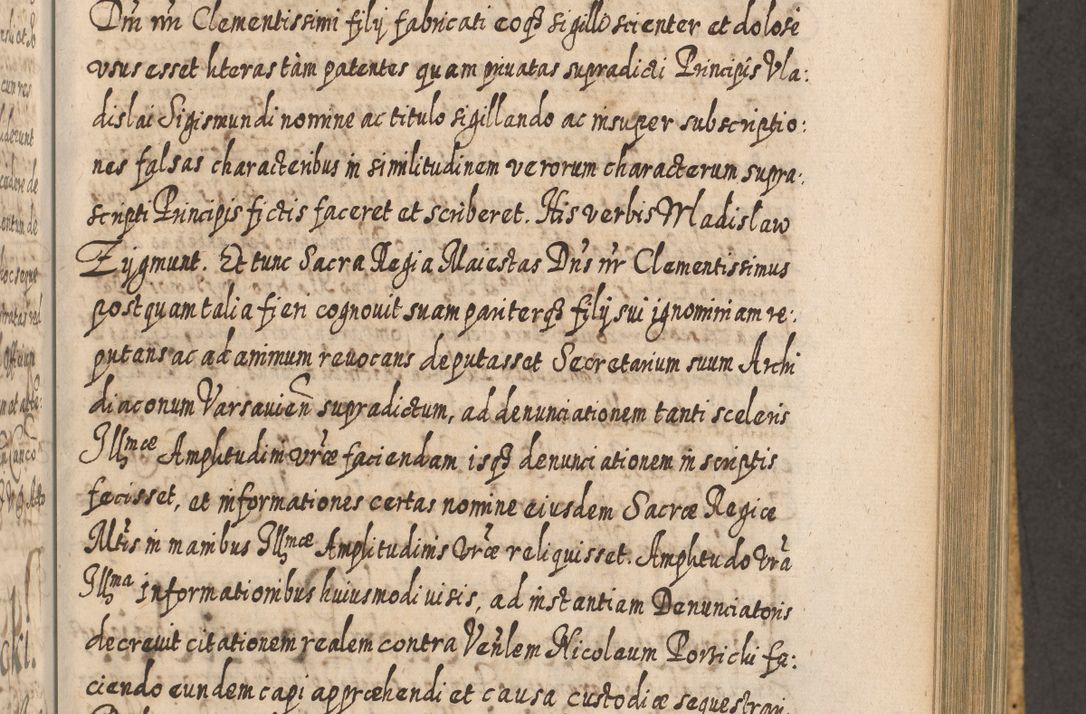 Dni nri Clementissimi filij fabricati eoq3 sigillo scienter et dolose
vsus esset literas tàm patentes quam priuatas supradicti Principis Vla:
dislai Sigismundi nomine ac titulo sigillando ac insuper subscriptio:
nes falsas characteribus in similitudinem verorum characterum supra:
scripti Principis fictis faceret et scriberet. His verbis Wladislaw
Zijgmunt. Et tunc Sacra Regia Maiestas Dns nr Clementissimus
postquam talia fieri cognouit suam pariterq3 filij sui ignominiam re:
putans ac ad animum reuocans deputasset Secretarium suum Archi
diaconum Varsauien supradictum, ad denunciationem tanti sceleris
Illmae Amplitudini vrae faciendam isq3 denunciationem in scriptis
fecisset, et informationes certas nomine eiusdem Sacrae Regiae
Mtis in manibus Illmae Amplitudinis Vrae reliquisset. Amplitudo Vra
Illma informationibus huiusmodi visis, ad instantiam Denunciatoris
decreuit citationem realem contra Venlem Nicolaum Porzicki fa:
ciendo eundem capi appraehendi et causa custodiae sequestrari.